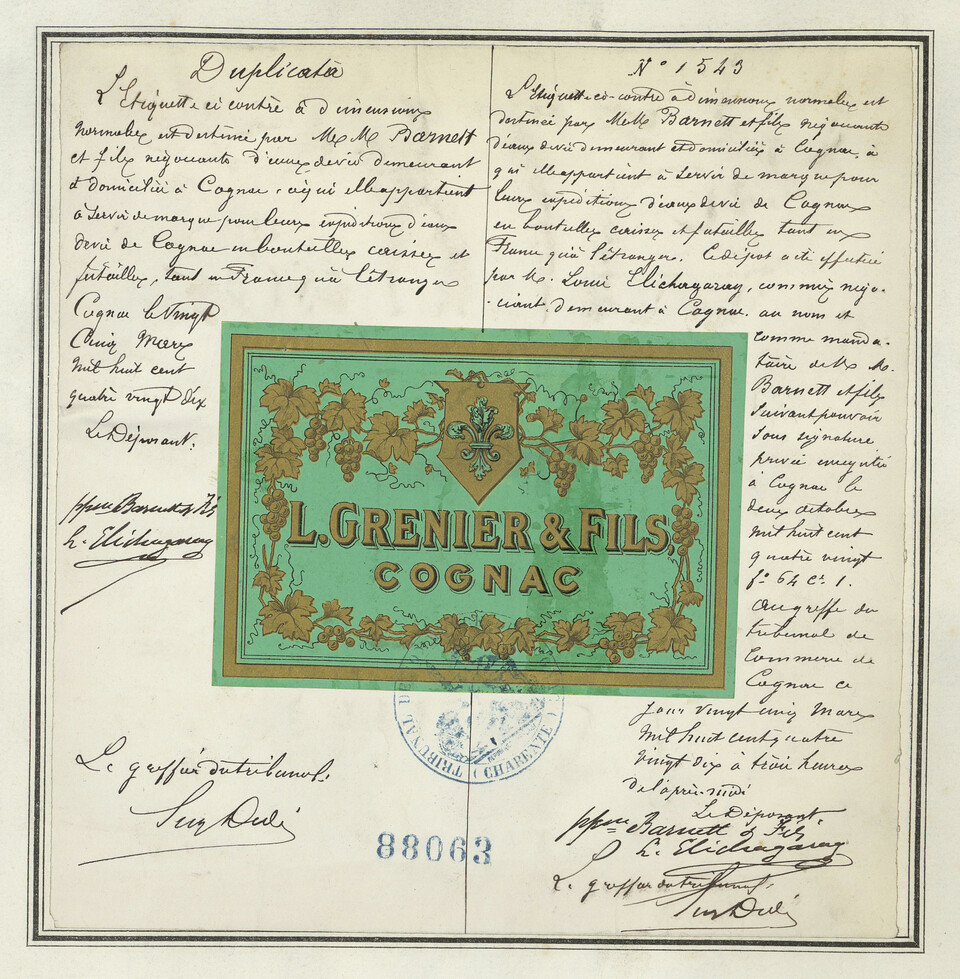 Duplicata
L'Etiquette ci contre à dimensions
normales est destinée par MM Barnett
et fils négociants d'eaux de vie demeurant
et domiciliés à Cognac, à qui elle appartient
à servir de marque pour leurs expéditions d'eaux
de vie de Cognac en bouteilles caisses et
futailles, tant en France qu'à l'étranger
Cognac le Vingt
Cinq Mars
mil huit cent
quatre vingt dix
Le Déposant:
ppon Barnett & Fils
L. Elichagaray
Le greffier du tribunal.
N° 1543
L'Etiquette ci-contre à dimensions normales est
destinée par MM Barnett et fils négociants
d'eaux de vie demeurant et domiciliés à Cognac, à
qui elle appartient à servir de marque pour
leurs expéditions d'eaux de vie de Cognac
en bouteilles caisses et futailles tant en
France qu'à l'étranger. Ce dépot a été effectué
par M. Louis Elichagaray, commis négo-
-ciant, demeurant à Cognac. au nom et
comme manda-
taire de MM.
Barnett et fils
Suivant pouvoir
sous signature
privée enregistré
à Cognac le
deux octobre
mil huit cent
quatre vingt
f° 64 Cs 1.
au greffe du
tribunal de
Commerce de
Cognac ce
jour vingt cinq Mars
mil huit cent quatre
vingt dix à trois heures
de l'après-midi
Le Déposant.
ppon Barnett & Fils
L. Elichagaray
Le greffier du tribunal.
L. GRENIER & FILS,
COGNAC
TRIBUNAL DE
(CHARENTE)
88063